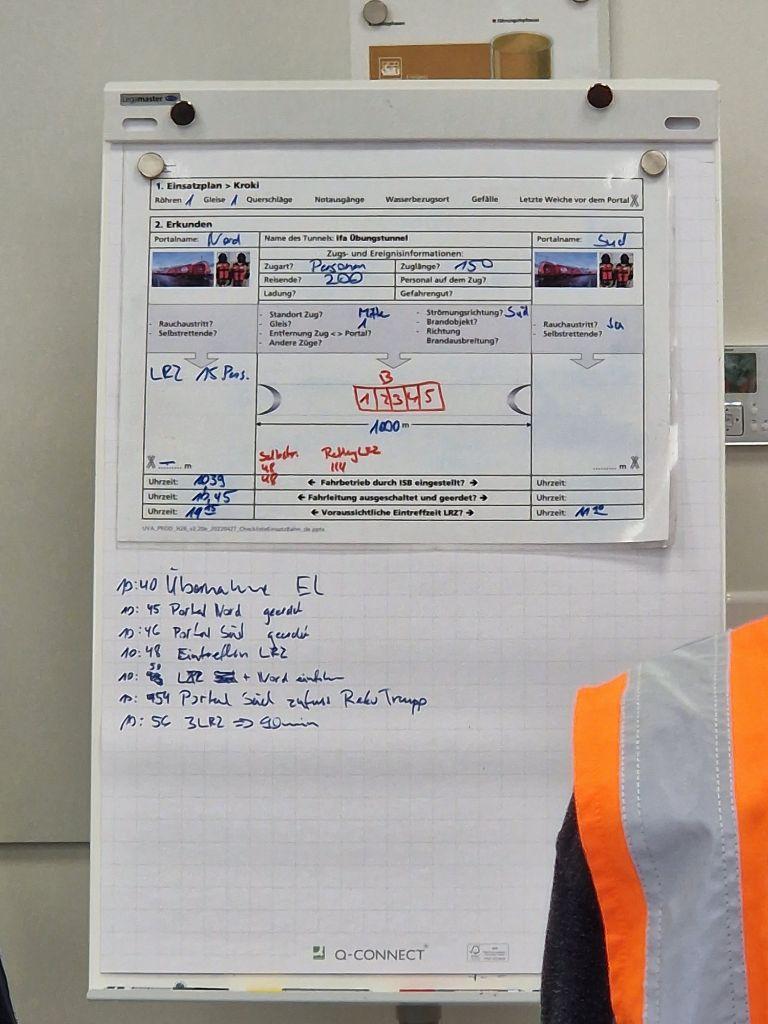 Legamaster
1. Einsatzplan > Kroki
Röhren 1 Gleise 1 Querschläge Notausgänge Wasserbezugsort Gefälle Letzte Weiche vor dem Portal X
2. Erkunden
Portalname: Nord
Name des Tunnels: Ifa Übungstunnel
Portalname: Süd
Zugs- und Ereignisinformationen:
Zugart? Personen
Zuglänge? 150
Reisende? 200
Personal auf dem Zug?
Ladung?
Gefahrengut?
- Rauchaustritt?
- Selbstrettende?
- Standort Zug? Mitte
- Gleis? 1
- Entfernung Zug <> Portal?
- Andere Züge?
- Strömungsrichtung? Süd
- Brandobjekt?
- Richtung
Brandausbreitung?
- Rauchaustritt? Ja
- Selbstrettende?
LRZ 15 Pers.
B
1 2 3 4 5
1000 m
Selbstr. Rettung LRZ
48 114
48
X — m
........ m X
Uhrzeit: 1039
← Fahrbetrieb durch ISB eingestellt? →
Uhrzeit:
Uhrzeit: 10,45
← Fahrleitung ausgeschaltet und geerdet? →
Uhrzeit:
Uhrzeit:
← Voraussichtliche Eintreffzeit LRZ? →
Uhrzeit: 11
10:40 Übernahme EL
10:45 Portal Nord geerdet
10:46 Portal Süd geerdet
10:48 Eintreffen LRZ
10:50 LRZ + Nord einfahren
10:54 Portal Süd zufuss Reko Trupp
10:56 3LRZ => 90min
Q-CONNECT